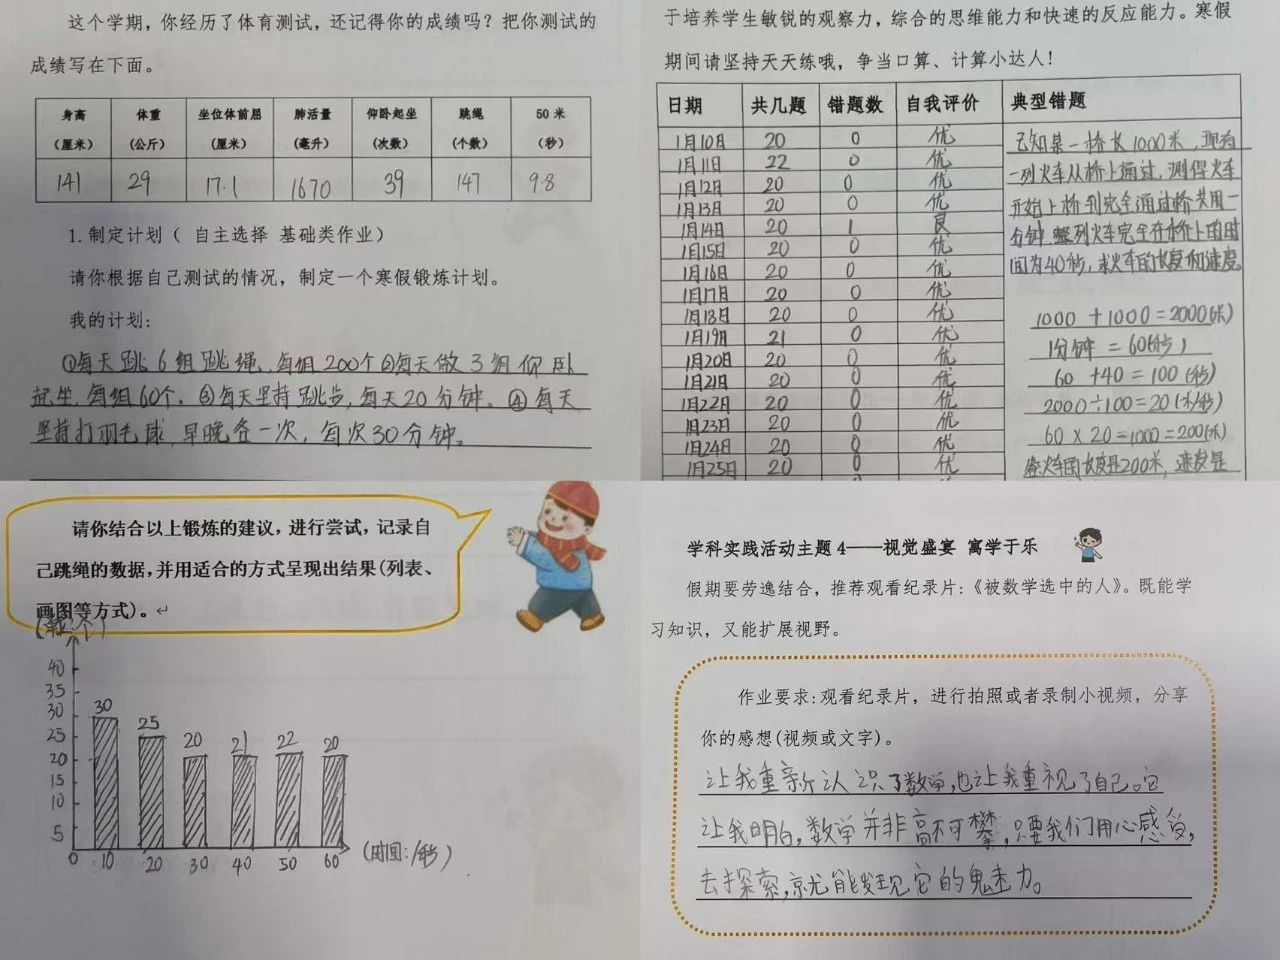 这个学期，你经历了体育测试，还记得你的成绩吗？把你测试的
成绩写在下面。
身高（厘米） 体重（公斤） 坐位体前屈（厘米） 肺活量（毫升） 仰卧起坐（次数） 跳绳（个数） 50米（秒）
141 29 17.1 1670 39 147 9.8
1.制定计划（ 自主选择 基础类作业）
请你根据自己测试的情况，制定一个寒假锻炼计划。
我的计划：
①每天跳6组跳绳、每组200个②每天做3组仰卧
起坐，每组60个。③每天坚持跳步，每天20分钟。④每天
坚持打羽毛球，早晚各一次，每次30分钟。
于培养学生敏锐的观察力，综合的思维能力和快速的反应能力。寒假
期间请坚持天天练哦，争当口算、计算小达人！
日期 共几题 错题数 自我评价 典型错题
1月10日 20 0 优
1月11日 22 0 优
1月12日 20 0 优
1月13日 20 0 优
1月14日 20 1 良
1月15日 20 0 优
1月16日 20 0 优
1月17日 20 0 优
1月18日 20 0 优
1月19日 21 0 优
1月20日 20 0 优
1月21日 20 0 优
1月22日 20 0 优
1月23日 20 0 优
1月24日 20 0 优
1月25日 20 0 优
已知某一桥长1000米，现有
一列火车从桥上通过，测得火车
开始上桥到完全通过桥共用一
分钟，整列火车完全在桥上的时
间为40秒，求火车的长度和速度。
1000+1000=2000(米)
1分钟=60(秒)
60+40=100(秒)
2000÷100=20(米/秒)
60×20=1000=200(米)
答：火车的长度是200米，速度是
请你结合以上锻炼的建议，进行尝试，记录自
己跳绳的数据，并用适合的方式呈现出结果（列表、
画图等方式）。
(单位:个)
40
35
30
25
20
15
10
5
0
30 25 20 21 22 20
10 20 30 40 50 60 (时间:/秒)
学科实践活动主题4——视觉盛宴 寓学于乐
假期要劳逸结合，推荐观看纪录片：《被数学选中的人》。既能学
习知识，又能扩展视野。
作业要求:观看纪录片，进行拍照或者录制小视频，分享
你的感想(视频或文字)。
让我重新认识了数学，也让我重视了自己。它
让我明白，数学并非高不可攀，只要我们用心感受，
去探索，就能发现它的魅力。